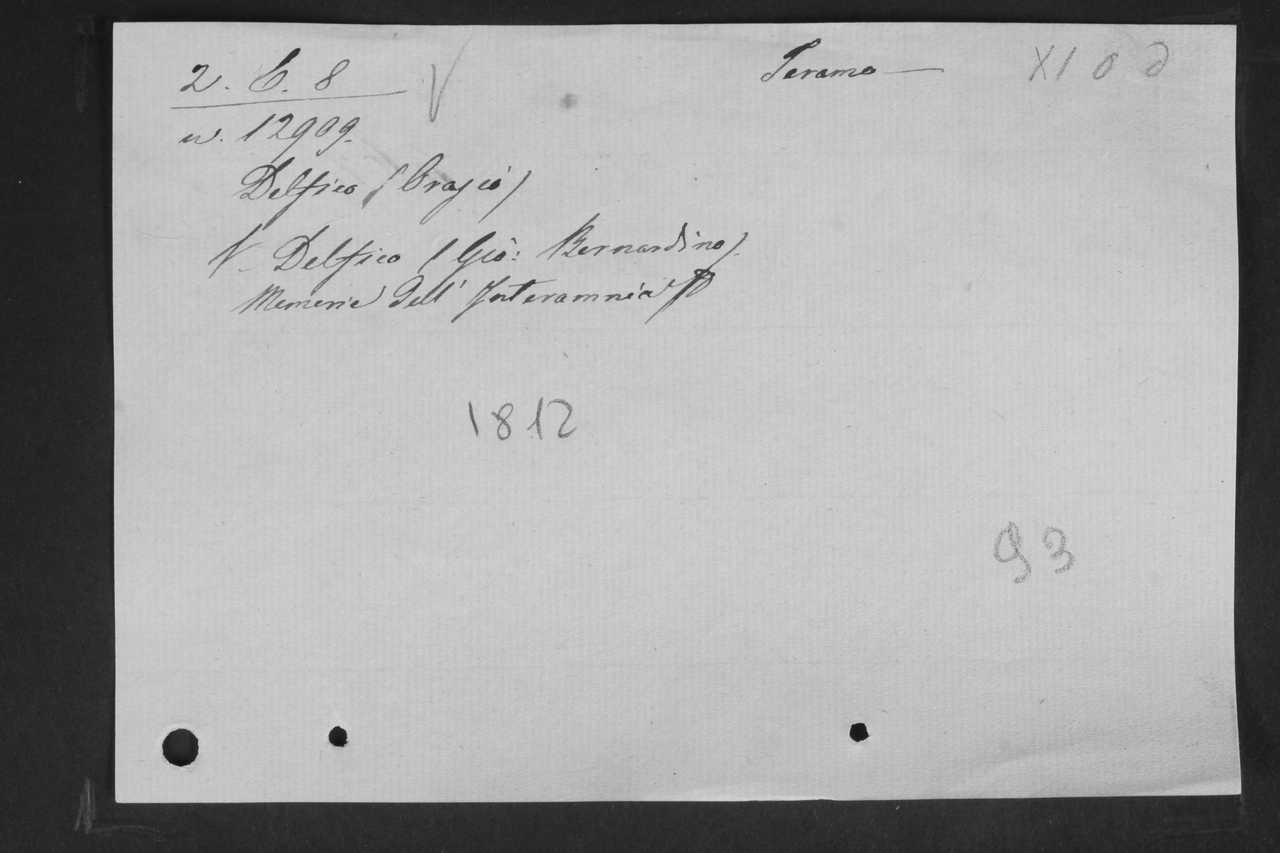 2. C. 8
Teramo —
XI 6 d
n. 12909.
Delfico (Orazio)
V. Delfico (Gio: Bernardino).
Memorie dell' Interamnia
1812
93